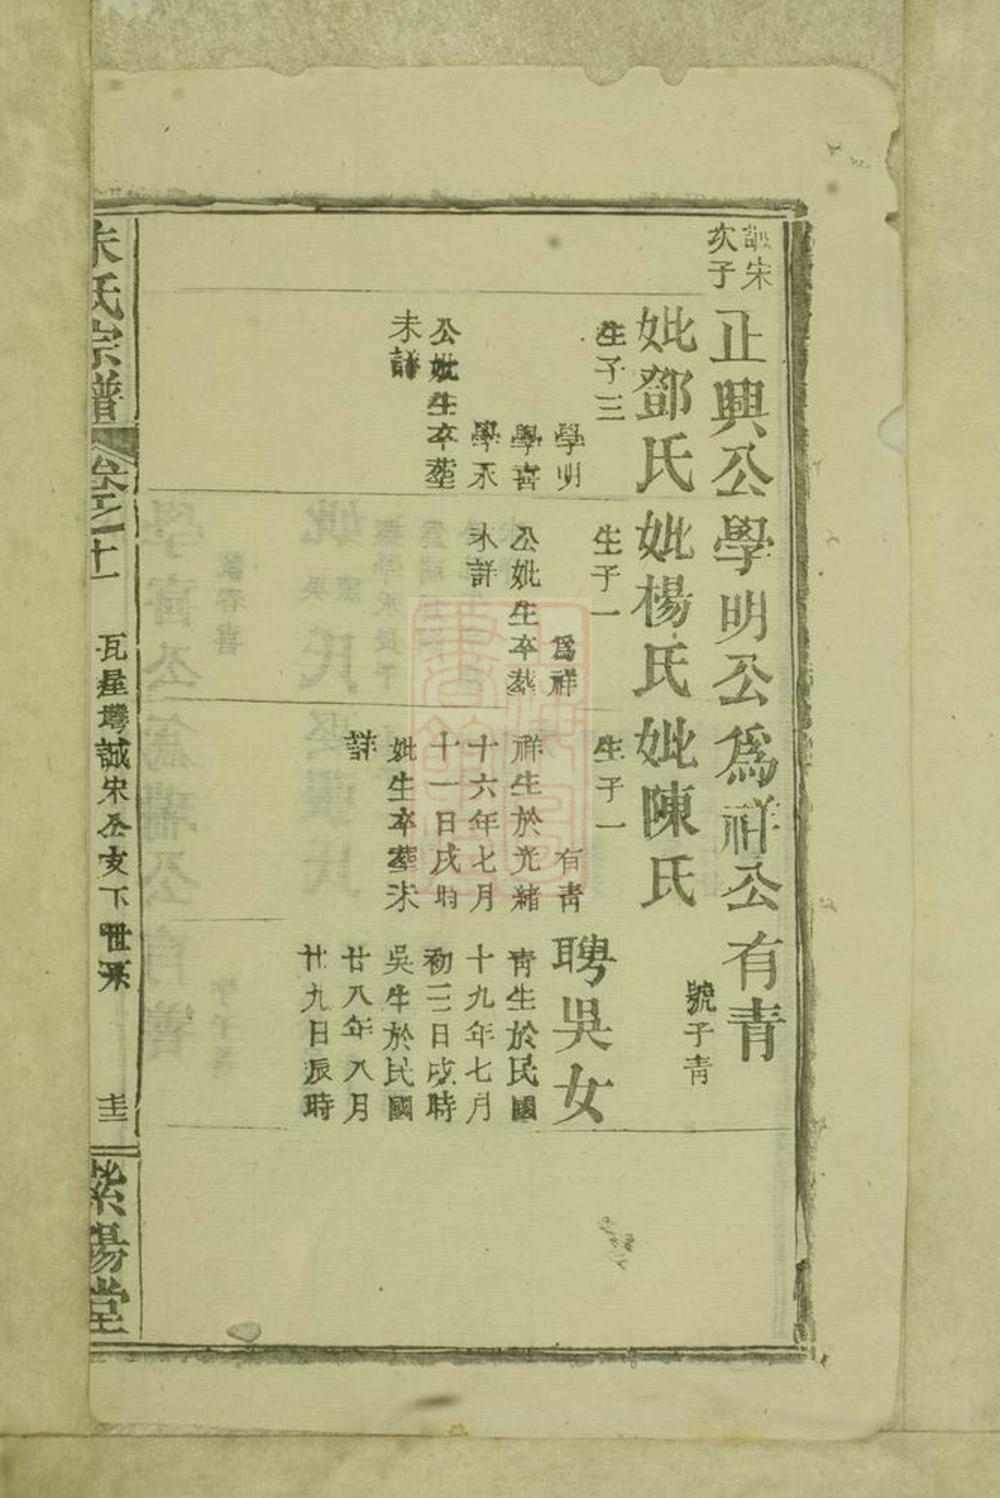 誠宋
次子
正興公
妣鄧氏
生子三
學明
學書
學禾
公妣生卒葬
未詳
學明公
妣楊氏
生子一
爲祥
公妣生卒葬
未詳
爲祥公
妣陳氏
生子一
有青
祥生於光緒
十六年七月
十一日戌時
妣生卒葬未
詳
有青
號子青
聘吳女
青生於民國
十九年七月
初三日戌時
吳生於民國
廿八年八月
廿九日辰時
朱氏宗譜
卷之十一
瓦屋壪誠宋公支下世系
圭
紫陽堂